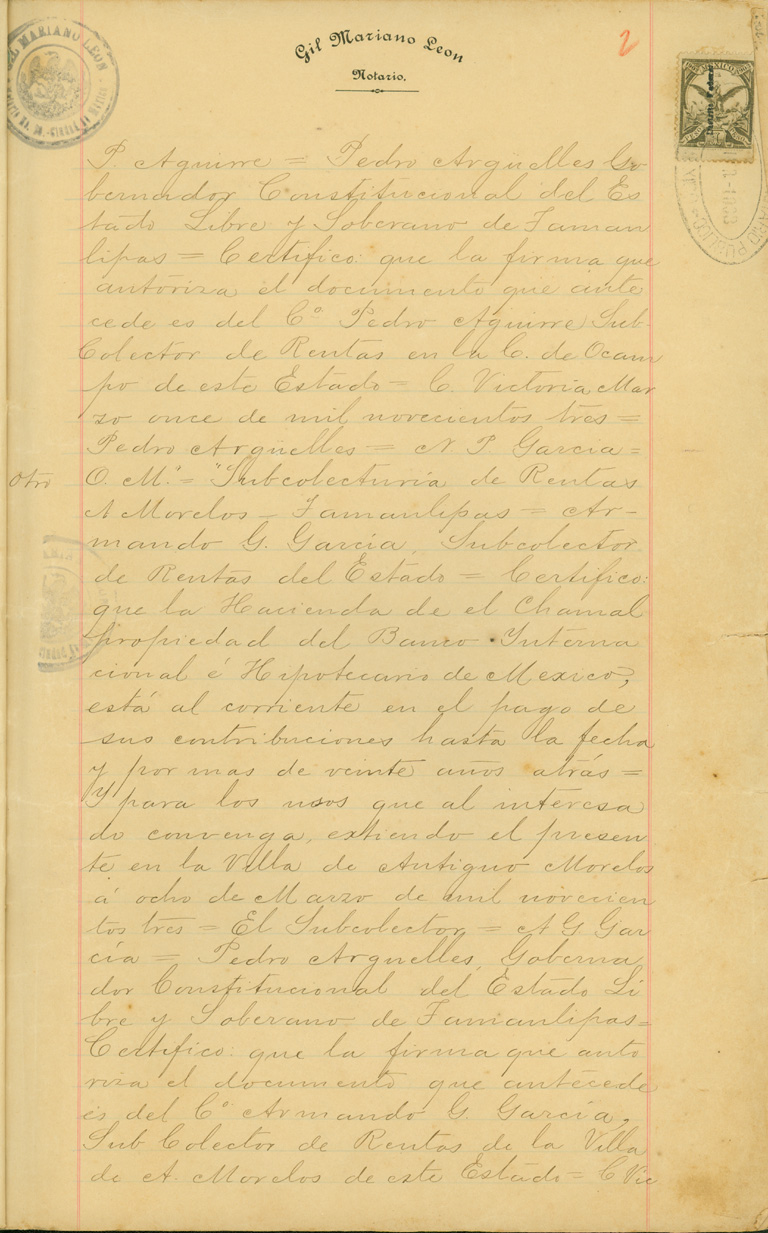 Gil Mariano Leon
Notario.
2
GIL MARIANO LEON
MEXICO
P. Aguirre = Pedro Argüelles Go
bernador Constitucional del Es
tado Libre y Soberano de Tamau
lipas = Certifico: que la firma que
autoriza el documento que ante
cede es del Cº. Pedro Aguirre Sub-
Colector de Rentas en la C. de Ocam
po de este Estado = C. Victoria, Mar
zo once de mil novecientos tres =
Pedro Argüelles = N. P. Garcia =
Otro
O. M." = "Subcolecturía de Rentas
A Morelos - Tamaulipas = Ar-
mando G. García, Subcolector
de Rentas del Estado = Certifico:
que la Hacienda de el Chamal
propiedad del Banco Interna
cional é Hipotecario de Mexico,
está al corriente en el pago de
sus contribuciones hasta la fecha
y por mas de veinte años atrás =
Y para los usos que al interesa
do convenga, extiendo el presen
te en la Villa de Antiguo Morelos
á ocho de Marzo de mil novecien
tos tres = El Subcolector = A G. Gar
cía = Pedro Arguelles, Goberna
dor Constitucional del Estado Li
bre y Soberano de Tamaulipas =
Certifico: que la firma que auto
riza el documento que antecede
es del Cº Armando G. García,
Sub Colector de Rentas de la Villa
de A. Morelos de este Estado = C Vic